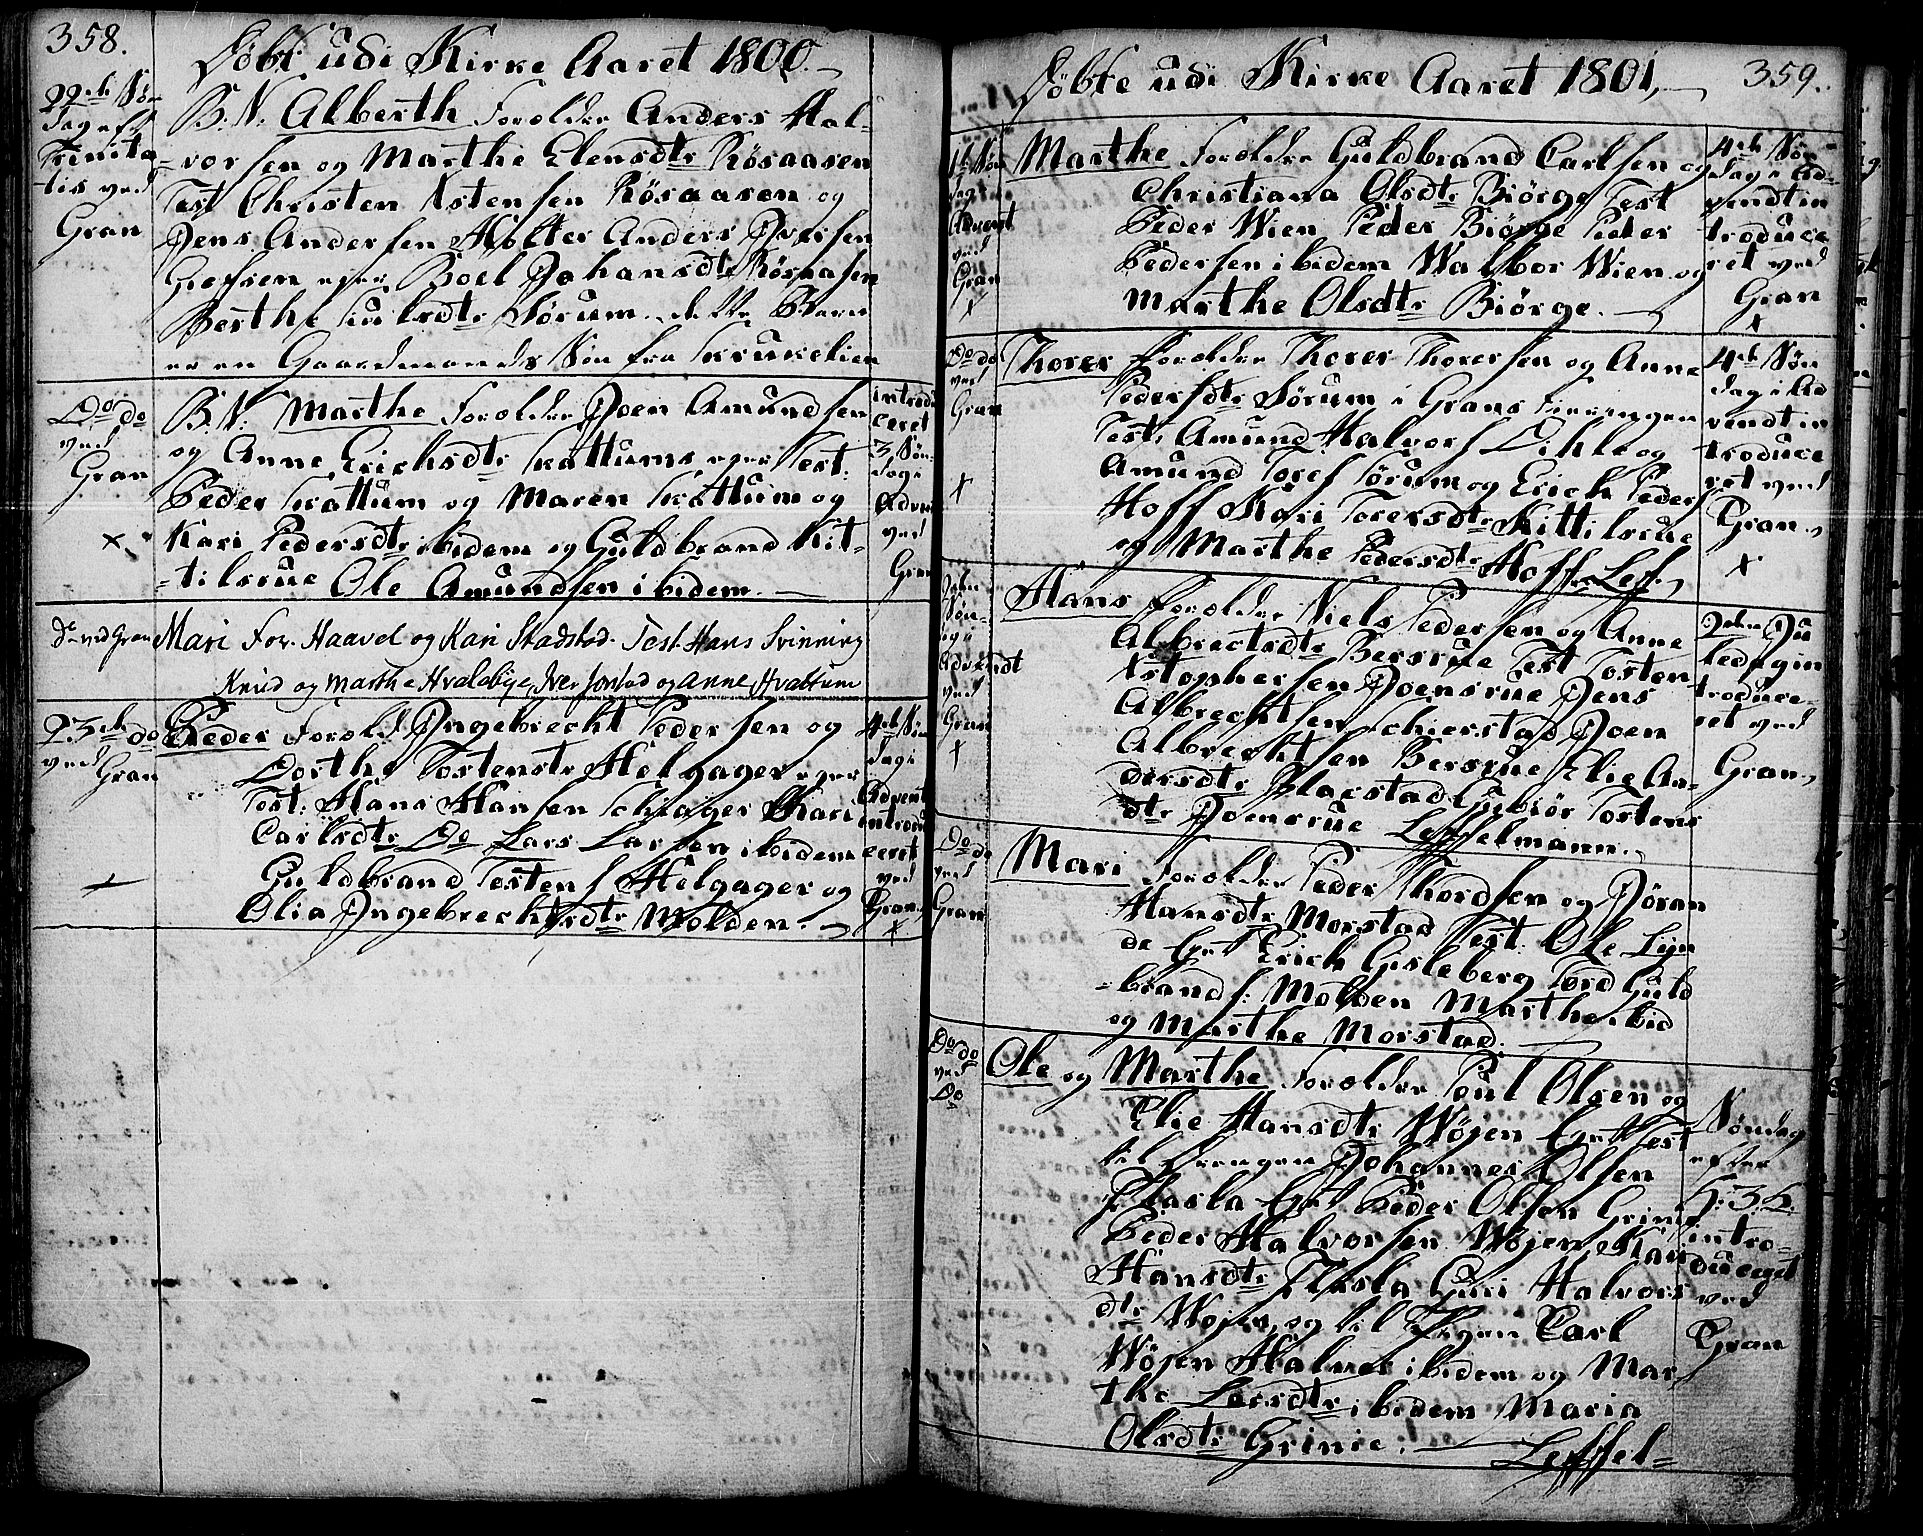 358.
Döbt udi Kirke Aaret 1800.
22de Søn
dag eft
Trinita
tis ved
Gran
B: N: Alberth Forældre Anders Hal-
-vorsen og Marthe Elensdtr Rösaasen
Test Christen Astensen Rösaasen og
Jens Andersen Molter Anders Iversen
Boel Johansdtr Rösaasen
Berthe Sørum dette Barn
er en Gaardmands Søn fra
Do do
ved
Gran
×
B: N: Marthe Forældre Joen Amundsen
og Anne Erichsdtr Test:
Peder og Maren og
Kari Pedersdtr ibidem og Guldbrand Kit-
-tilsrue Ole Amundsen ibidem.
introdu
ceret
3 Søn-
dag i
Advent
ved
Gran
Do ved Gran Mari For. Haavel og Kari Stadstad. Test. Hans Svinning
Knud og Marthe Hvalebye, Iver Jonstad og Anne Hvattum
23de do
ved
Gran
Peder Foreld Ingebrecht Pedersen og
Dorthe Tostensdtr Helgager eger
Test. Hans Hansen Schiager Kari
Carlsdtr Do Lars Larsen ibidem
Guldbrand Tostens Helgager og
Olia Ingebrechtsdtr Molden.
4de Søn
dag i
Advent
introdu
ceret
ved
Gran
×
Döbte udi Kirke Aaret 1801,
359.
1te Søn
dag i
Advent
ved
Gran
×
Marthe Forældre Guldbrand Carlsen og
Christiana Olsdtr Biörge Test
Peder Wien Peder Biörge Peder
Pedersen ibidem Walbor Wien og
Marthe Olsdtr Biörge.
4de Søn
dag i Ad-
vendt in
troduce
ret ved
Gran
×
Do do
ved
Gran
×
Thorer Forældre Thorer Thorersen og Anne
Pedersdtr Sørum i Grans
Test: Amund Halvors Dihle og
Amund Tores Sørum og Erich Peders
Hoff Kari Torersdtr Kittilsrue
og Marthe Pedersdtr Hoff. Leff.
4de Søn
dag i Ad
vendt in
troduce
ret ved
Gran.
×
Søn-
dag i
Advendt
ved
Gran
×
Hans Forældre Niels Pedersen og Anne
Albrectsdtr Bersrue Test Tosten
Kstophersen Joensrue Jens
Albrechtsen Schierstad Joen
Albrechtsen Bersrue Elie An-
dersdtr Gubiör Tostens
dtr Joensrue Leffelmann.
2den Ju
ledag in
troduce-
ret ved
Gran,
Do do
ved
Gran
Mari Forældre Peder Thordsen og Jöran
Hansdtr Morstad Test: Ole Lyn
de Erich Gisleberg Tord Guld
-brands: Molden Marthe ibid
og Marthe Morstad.
Do do
ved
Do
Ole og Marthe Forældre Poul Olsen og
Elie Hansdtr Wøjen Test
til Drengen Johannes Olsen
Flasla Peder Olsen Grinie
Peder Halvorsen Wøjen Kari
Hansdtr Flasla Guri Halvors
dtr Wøjen, og til Pigen Carl
Wøjen Halvor ibidem og Mar
the Larsdtr ibidem Maria
Olsdtr Grinie. Leffel=
Søndag
efter
H: 3 K
intro-
duceret
ved
Gran